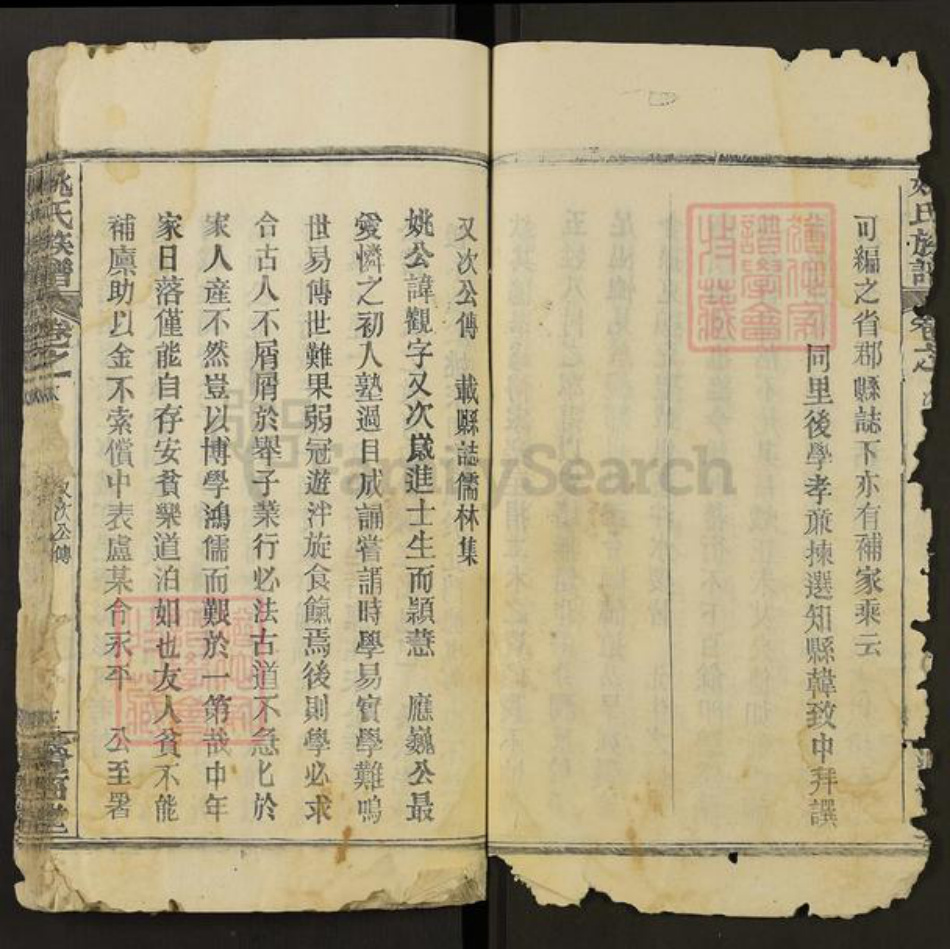 可編之省郡縣誌下亦有補家乘云
同里後學孝亷揀選知縣韓致中拜譔
又次公傳 載縣誌儒林集
姚公諱觀字又次歲進士生而穎慧 應巍公最
愛憐之初入塾過目成誦嘗謂時學易實學難鳴
世易傳世難果弱冠遊泮旋食餼焉後則學必求
合古人不屑屑於舉子業行必法古道不急匕於
家人産不然豈以博學鴻儒而艱於一第哉中年
家日落僅能自存安貧樂道泊如也友人貧不能
補廪助以金不索償中表盧某合永平 公至署
姚氏族譜 卷之 又次公傳
氏族譜 卷之
FamilySearch